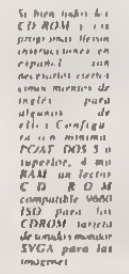 Si bien todos los
CD ROM y sus
programas llevan
instrucciones en
español son
necesarios ciertos
conocimientos de
inglés para
algunos de
ellos Configu
ra con mínima
PC/AT DOS 5 o
superior, 4 mb
RAM un lector
CD ROM
compatible 9660
ISO para los
CDROM tarjeta
de sonidos monitor
SVGA para las
imágenes